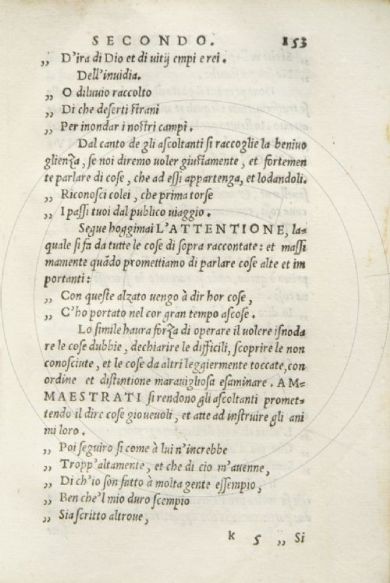 SECONDO. 153
,, D'ira di Dio et di uitij empi e rei.
Dell'inuidia.
,, O diluuio raccolto
,, Di che deserti strani
,, Per inondar i nostri campi.
Dal canto de gli ascoltanti si raccoglie la beniuo
glienza, se noi diremo uoler giustamente, et fortemen
te parlare di cose, che ad essi appartenga, et lodandoli.
,, Riconosci colei, che prima torse
,, I passi tuoi dal publico uiaggio.
Segue hoggimai L'ATTENTIONE, la-
quale si fa da tutte le cose di sopra raccontate: et massi
mamente quādo promettiamo di parlare cose alte et im
portanti:
,, Con queste alzato uengo à dir hor cose,
,, C'ho portato nel cor gran tempo ascose.
Lo simile haura forza di operare il uolere isnoda
re le cose dubbie, dechiarire le difficili, scoprire le non
conosciute, et le cose da altri leggiermente toccate, con
ordine et distintione marauigliosa esaminare. AM-
MAESTRATI si rendono gli ascoltanti promet-
tendo il dire cose gioueuoli, et atte ad instruire gli ani
mi loro.
,, Poi seguiro si come à lui n'increbbe
,, Tropp'altamente, et che di cio m'auenne,
,, Di ch'io son fatto à molta gente essempio,
,, Ben che'l mio duro scempio
,, Sia scritto altroue,
K 5 ,, Si